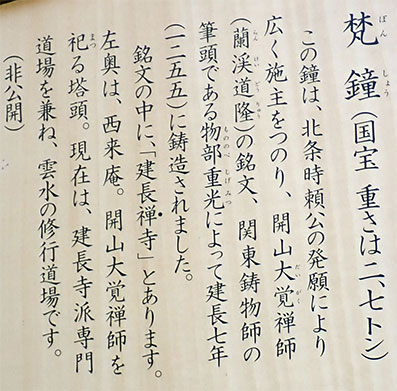 梵鐘(国宝 重さは二、七トン)
この鐘は、北条時頼公の発願により
広く施主をつのり、開山大覚禅師
(蘭渓道隆)の銘文、関東鋳物師の
筆頭である物部重光によって建長七年
(一二五五)に鋳造されました。
銘文の中に「建長禅寺」とあります。
左奥は、西来庵。開山大覚禅師を
祀る塔頭。現在は、建長寺派専門
道場を兼ね、雲水の修行道場です。
(非公開)